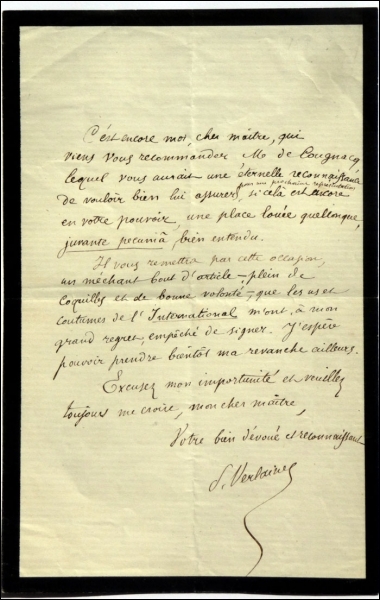 C'est encore moi, cher maître, qui
viens vous recommander M. de Cougnacq,
lequel vous aurait une éternelle reconnaissance
pour une prochaine représentation
de vouloir bien lui assurer, si cela est encore
en votre pouvoir, une place louée quelconque,
juvante pecuniâ bien entendu.
Il vous remettra par cette occasion,
un méchant bout d'article – plein de
coquilles et de bonne volonté – que les us et
coutumes de l'International m'ont, à mon
grand regret empêché de signer. J'espère
pouvoir prendre bientôt ma revanche ailleurs.
Excusez mon importunité et veuillez
toujours me croire, mon cher maître,
Votre bien dévoué et reconnaissant
P. Verlaine